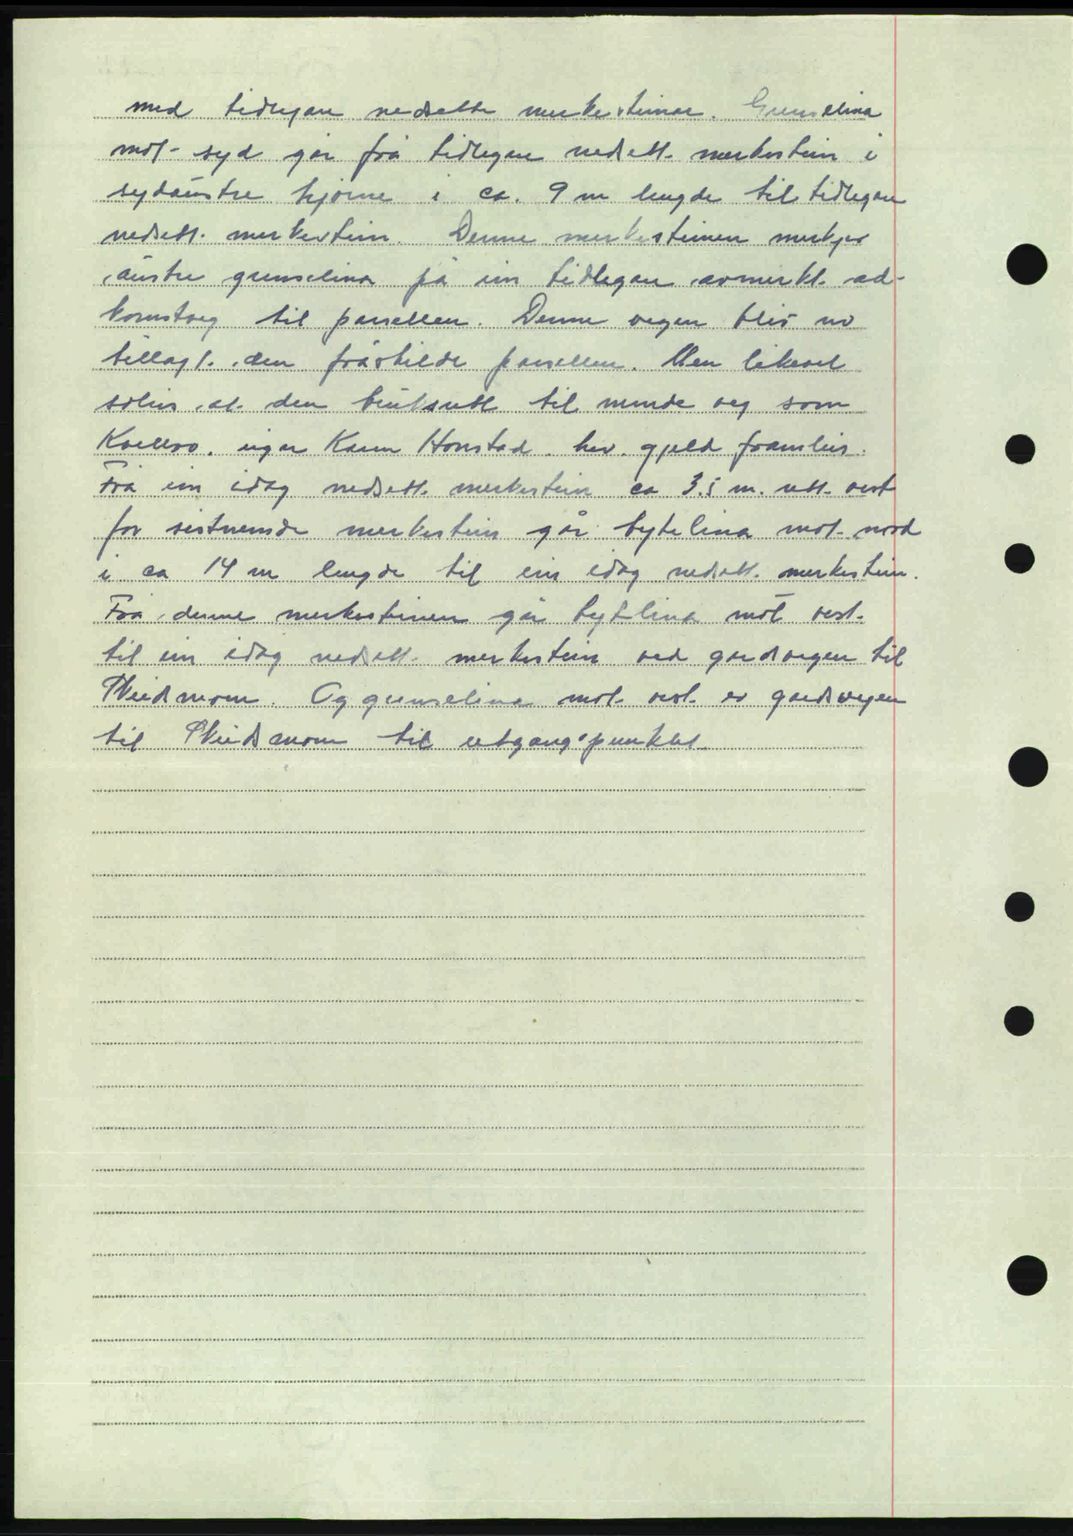 med tidlegare nedsette merkesteinar. Grenselina
mot syd går frå tidlegare nedsett merkestein i
sydaustre hjørne i ca. 9 m lengde til tidlegare
nedsett merkestein. Denne merkesteinen merkjer
austre grenselina på ein tidlegare avmerkt ad-
komstveg til parsellen. Denne vegen blir no
tillagt den fråskilde parsellen. Men likevel
slik at den bruksrett til nemde veg som
eigar Karen Honstad hev gjeld framleis.
Frå ein idag nedsett merkestein ca 3.5 m. rett vest
for sistnemde merkestein går bytelina mot nord
i ca 14 m lengde til ein idag nedsett merkestein.
Frå denne merkesteinen går bytelina mot vest
til ein idag nedsett merkestein ved gardvegen til
Og grenselina mot vest er gardsvegen
til til utgangspunktet